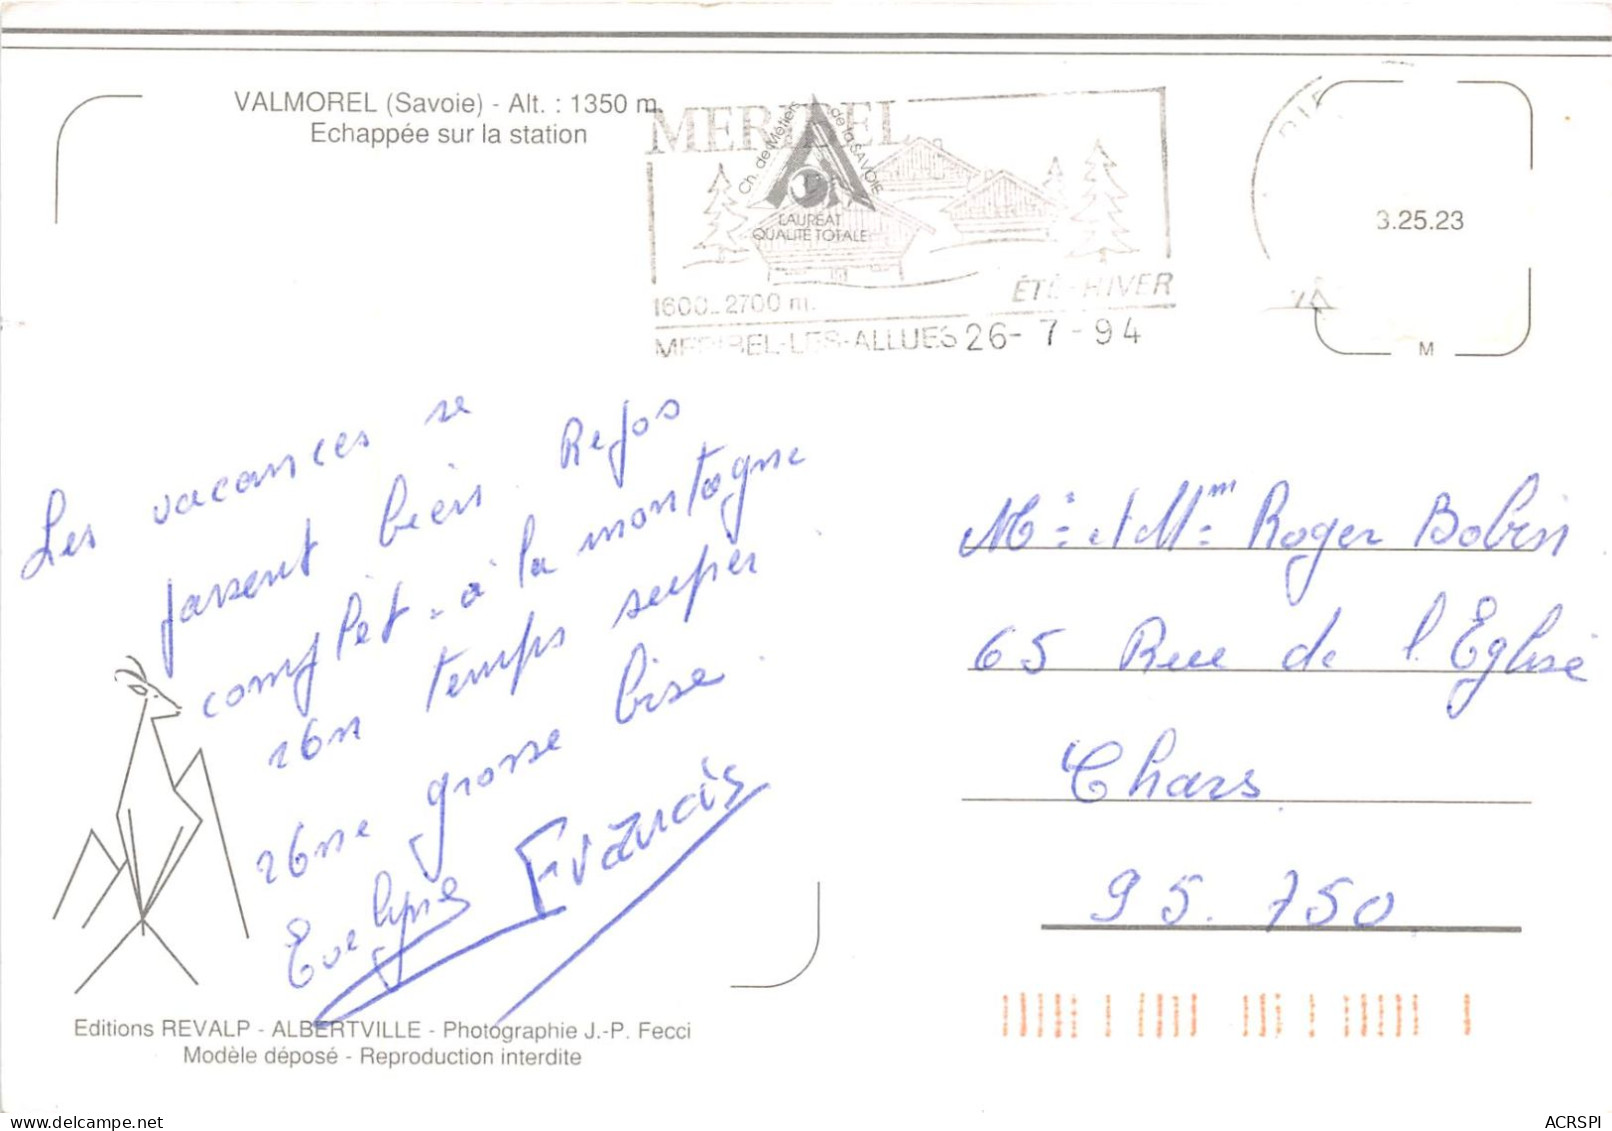 VALMOREL (Savoie) - Alt. : 1350 m.
Echappée sur la station
MERIBEL
Ch. de Métiers de la SAVOIE
LAURÉAT
QUALITÉ TOTALE
1600-2700 m.
ÉTÉ-HIVER
MERIBEL-LES-ALLUES 26-7-94
3.25.23
M
Les vacances se
passent bien. Repos
complèt - à la montagne
temps super
grosse bise.
Evelyne Francis
Mr et Mme Roger Bobin
65 Rue de l'Eglise
Chars
95.750
Editions REVALP - ALBERTVILLE - Photographie J.-P. Fecci
Modèle déposé - Reproduction interdite
ACRSPI